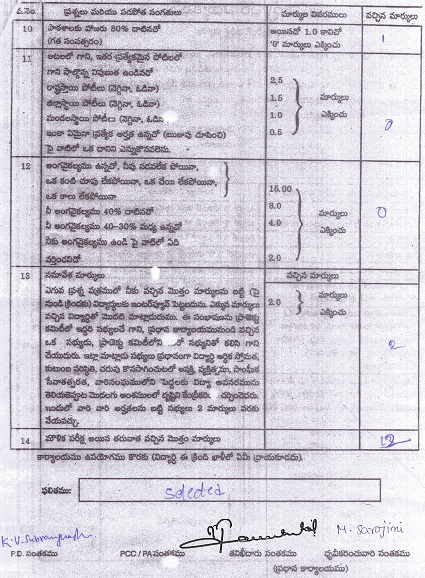 వ.నెం. ప్రశ్నలు మరియు సడపోత సంగతులు మార్కుల వివరములు వచ్చిన మార్కులు
10 పాఠశాలకు హాజరు 80% దాటినచో అయినచో 1.0 కానిచో 1
(గత సంవత్సరం) '0' మార్కులు ఎక్కించు
11 ఆటలలో గాని, ఇతర ప్రత్యేకమైన పోటీలలో
గాని పాల్గొన్న నిపుణత ఉండినచో
రాష్ట్రస్థాయి పోటీలు (నెగ్గినా, ఓడినా) 2.5
జిల్లాస్థాయి పోటీలు (నెగ్గినా, ఓడినా) 1.5 మార్కులు
మండలస్థాయి పోటీలు (నెగ్గినా, ఓడినా) 1.0 ఎక్కించు
ఇంకా ఏమైనా ప్రత్యేక అర్హత ఉన్నచో (ఋజువు చూపించి) 0.5 0
పై వాటిలో ఒక దానిని ఎన్నుకొనవలెను.
12 అంగవైకల్యము ఉన్నచో, నీవు నడపలేక పోయినా,
ఒక కంటి చూపు లేకపోయినా, ఒక చేయి లేకపోయినా,
ఒక కాలు లేకపోయినా 16.00
నీ అంగవైకల్యము 40% దాటినచో 8.0 మార్కులు 0
నీ అంగవైకల్యము 40-30% మధ్య ఉన్నచో 4.0 ఎక్కించు
నీకు అంగవైకల్యము ఉండి పై వాటిలో ఏది
వర్తించనిచో 2.0
13 సమావేశ మార్కులు వచ్చిన మార్కులు
ఎగువ ప్రశ్న పత్రములో నీకు వచ్చిన మొత్తం మార్కులను బట్టి (పై
నుండి క్రిందకు) విద్యార్థులకు ఇంటర్వ్యూవ్ పెట్టబడును. ఎక్కువ మార్కులు 2.0 మార్కులు
వచ్చిన విద్యార్థితో మొదట మాట్లాడుదుము. ఈ సంభాషణను ప్రాజెక్టు ఎక్కించు
కమిటీలో ఇద్దరి సభ్యులచే గాని, ప్రధాన కార్యాలయమునుండి వచ్చిన
ఒక సభ్యుడు, ప్రాజెక్టు కమిటీలోని సభ్యునితో కలిసి గాని
చేయుదురు. ఇట్లా మాట్లాడు సభ్యులు ప్రధానంగా విద్యార్థి ఆర్థిక స్తోమత, 2
కుటుంబ పరిస్థితి, చదువు కొనసాగించుటలో ఆసక్తి, వ్యక్తిత్వమూ, సాంఘీక
సేవాతత్పరత, వారినసంఘములోని పెద్దలకు విద్యా అవసరమును
తెలియజెప్పుట మొదలగు అంశములలో దృష్టిని కేంద్రీకరించి చర్చించెదరు.
ఇందులో వారి వారి అర్హతలను బట్టి సభ్యులు 2 మార్కులు వరకు
వేయవచ్చు.
14 మౌళిక పరీక్ష అయిన తరువాత వచ్చిన మొత్తం మార్కులు
కార్యాలయము ఉపయోగము కొరకు (విద్యార్థి ఈ క్రింద ఖాళీలో ఏమీ వ్రాయకూడదు).
ఫలితము: selected
K.V. M. Sarojini
P.D. సంతకము PCC / PAసంతకము తనిఖీదారు సంతకము ధృవీకరించువారి సంతకము
(ప్రధాన కార్యాలయము)